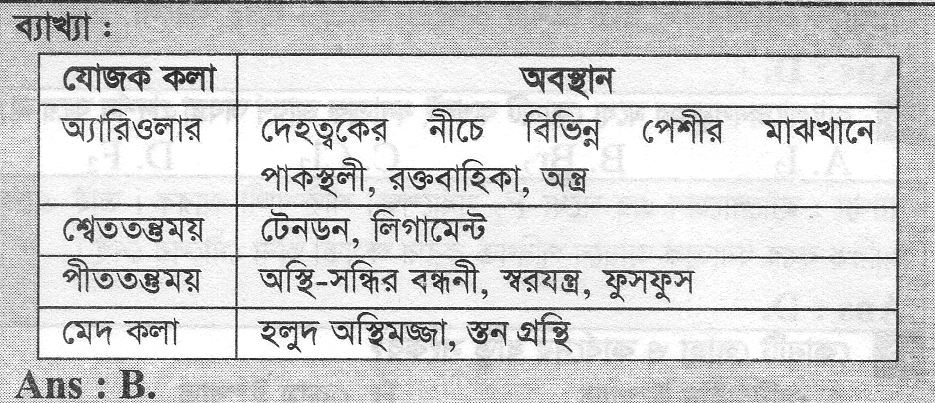 ব্যাখ্যা :
যোজক কলা অবস্থান
অ্যারিওলার দেহত্বকের নীচে বিভিন্ন পেশীর মাঝখানে
পাকস্থলী, রক্তবাহিকা, অন্ত্র
শ্বেততন্তুময় টেনডন, লিগামেন্ট
পীততন্তুময় অস্থি-সন্ধির বন্ধনী, স্বরযন্ত্র, ফুসফুস
মেদ কলা হলুদ অস্থিমজ্জা, স্তন গ্রন্থি
Ans : B.